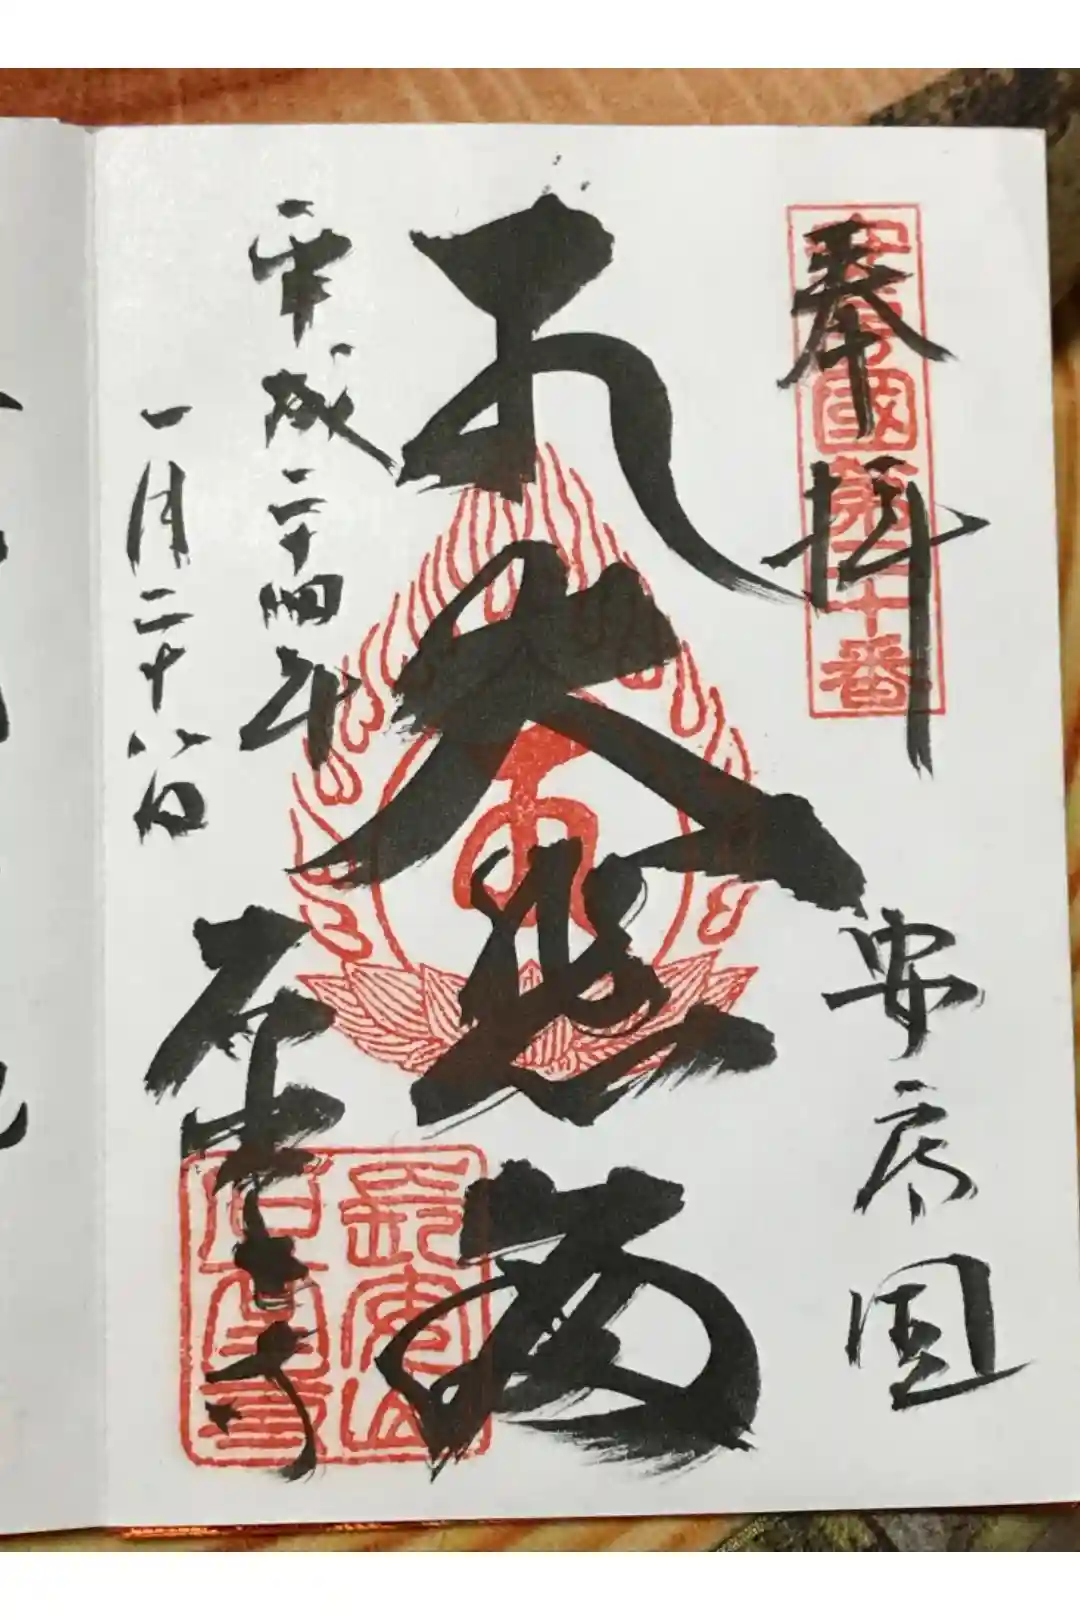 奉拝
安房國第二十番
安房国
大悲
平成二十四年
一月二十八日
石堂寺
長安山
石堂寺